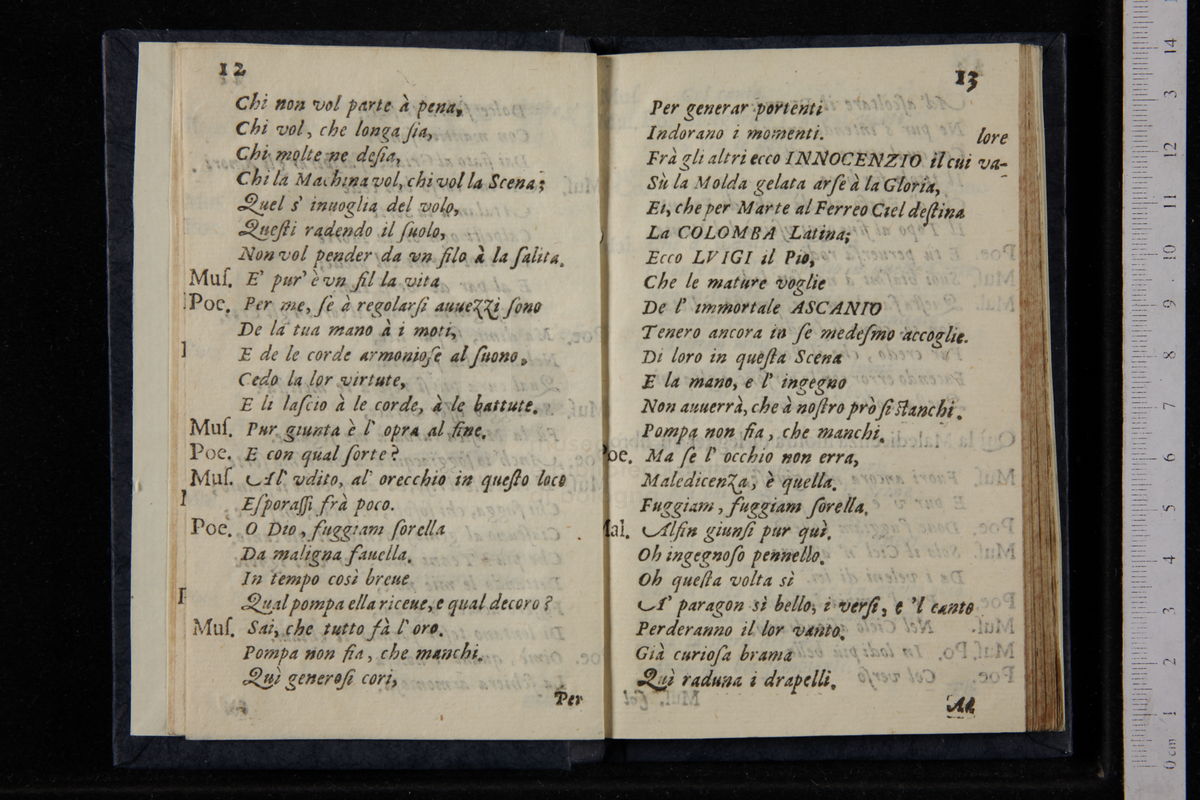 12
Chi non vol parte à pena,
Chi vol, che longa ſia,
Chi molte ne deſia,
Chi la Machina vol, chi vol la Scena;
Quel s' inuoglia del volo,
Queſti radendo il ſuolo,
Non vol pender da vn filo à la ſalita.
Muſ. E' pur' è vn fil la vita
Poe. Per me, ſe à regolarſi auuezzi ſono
De la tua mano à i moti,
E de le corde armonioſe al ſuono,
Cedo la lor virtute,
E li laſcio à le corde, à le battute.
Muſ. Pur giunta è l' opra al fine.
Poe. E con qual ſorte?
Muſ. Al' vdito, al' orecchio in queſto loco
Eſporaſſi frà poco.
Poe. O Dio, fuggiam ſorella
Da maligna fauella.
In tempo così breue
Qual pompa ella riceue, e qual decoro?
Muſ. Sai, che tutto fà l' oro.
Pompa non fia, che manchi.
Quì generoſi cori,
Per
13
Per generar portenti
Indorano i momenti.
lore
Frà gli altri ecco INNOCENZIO il cui va-
Sù la Molda gelata arſe à la Gloria,
Ei, che per Marte al Ferreo Ciel deſtina
La COLOMBA Latina;
Ecco LVIGI il Pio,
Che le mature voglie
De l' immortale ASCANIO
Tenero ancora in ſe medeſmo accoglie.
Di loro in queſta Scena
E la mano, e l' ingegno
Non auuerrà, che à noſtro prò ſi ſtanchi.
Pompa non fia, che manchi.
Poe. Ma ſe l' occhio non erra,
Maledicenza, è quella.
Fuggiam, fuggiam ſorella.
Mal. Alfin giunſi pur quì.
Oh ingegnoſo pennello.
Oh queſta volta sì
A' paragon sì bello, i verſi, e 'l canto
Perderanno il lor vanto.
Già curioſa brama
Quì raduna i drapelli.